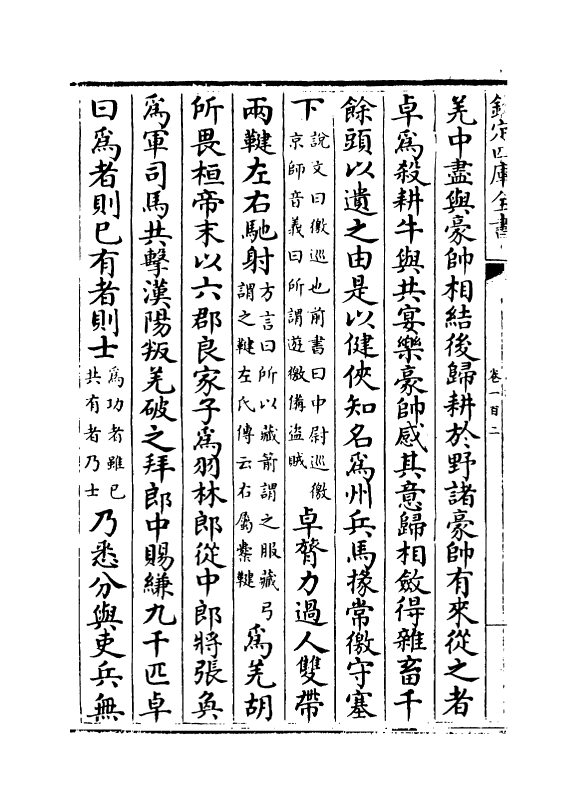 欽定四庫全書
卷一百二
羌中盡與豪帥相結後歸耕於野諸豪帥有來從之者
卓為殺耕牛與共宴樂豪帥感其意歸相斂得雜畜千
餘頭以遺之由是以健俠知名為州兵馬掾常徼守塞
下說文曰徼巡也前書曰中尉巡徼京師音義曰所謂遊徼備盜賊卓膂力過人雙帶
兩鞬左右馳射方言曰所以藏箭謂之服藏弓謂之鞬左氏傳云右屬櫜鞬為羌胡
所畏桓帝末以六郡良家子為羽林郎從中郎將張奐
為軍司馬共擊漢陽叛羌破之拜郎中賜縑九千匹卓
曰為者則已有者則士為功者雖已共有者乃士乃悉分與吏兵無